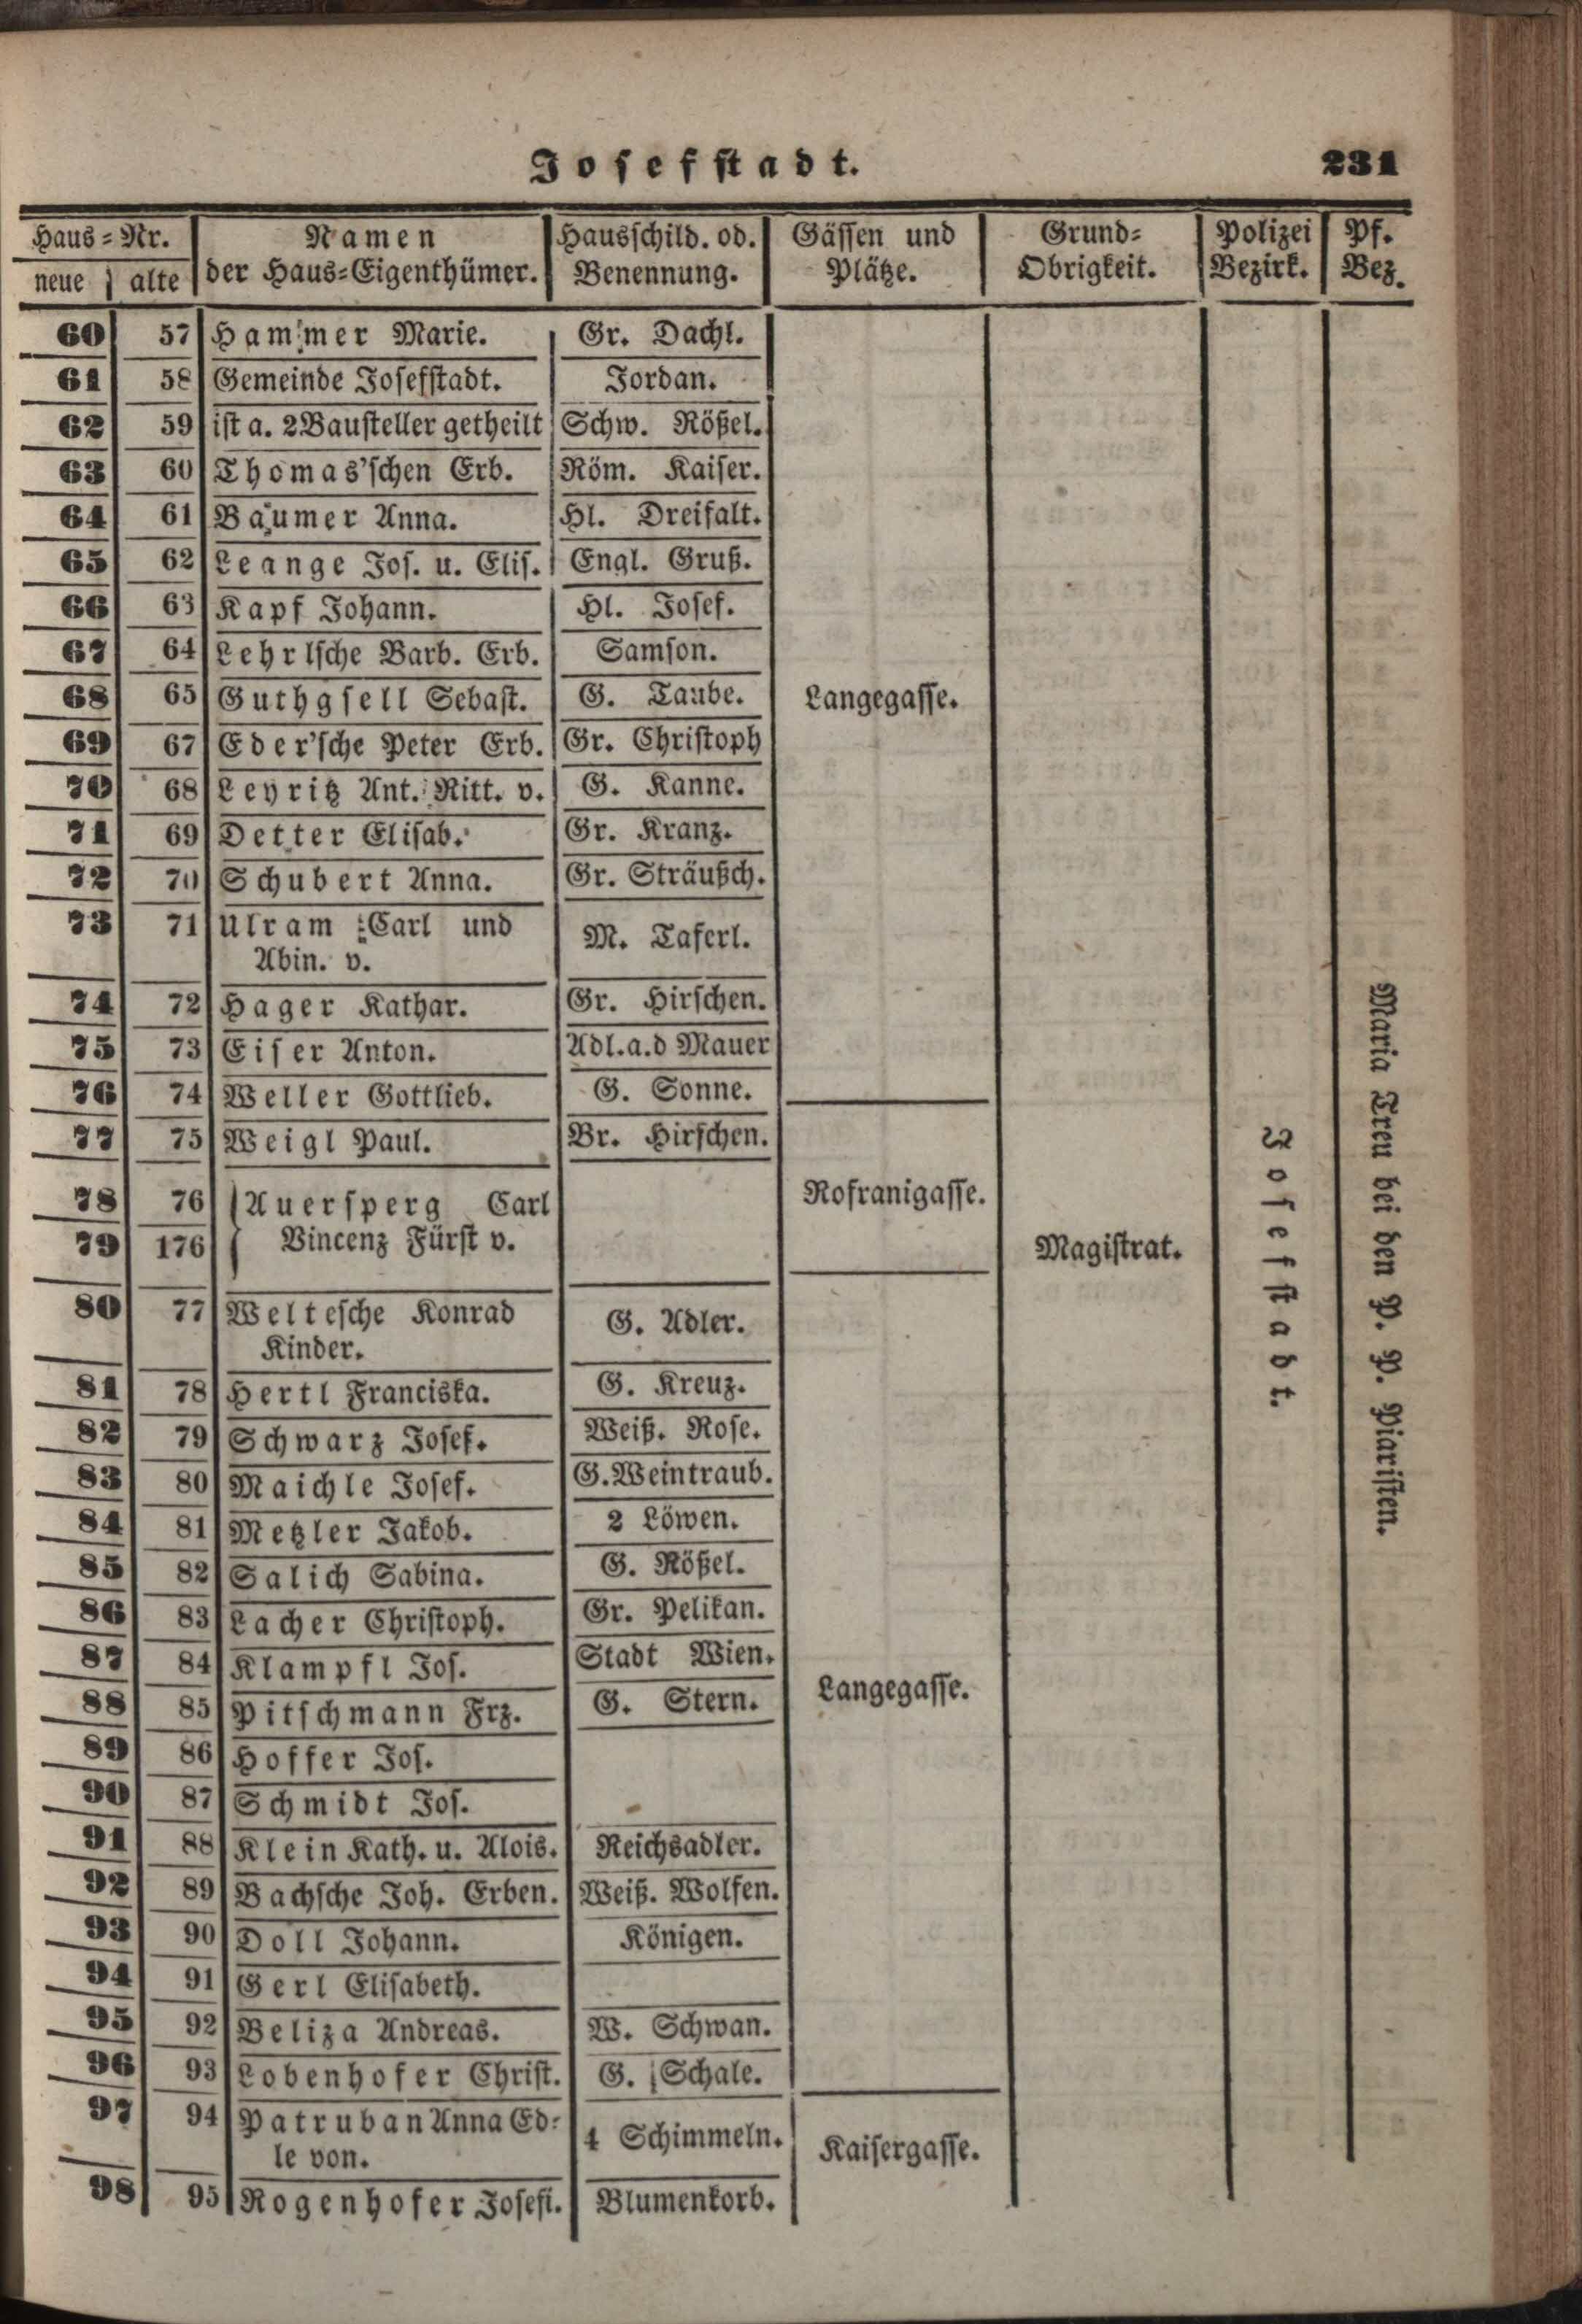 Josefstadt. 231
Haus=Nr. Namen Hausschild. od. Gässen und Grund= Polizei Pf.
neue alte der Haus=Eigenthümer. Benennung. Plätze. Obrigkeit. Bezirk. Bez.
60 57 Hammer Marie. Gr. Dachl.
61 58 Gemeinde Josefstadt. Jordan.
62 59 ist a. 2 Baustellen getheilt Schw. Rößel.
63 60 Thomas'schen Erb. Röm. Kaiser.
64 61 Baumer Anna. Hl. Dreifalt.
65 62 Leange Jos. u. Elis. Engl. Gruß.
66 63 Kapf Johann. Hl. Josef.
67 64 Lehrlsche Barb. Erb. Samson.
68 65 Guthgsell Sebast. G. Taube. Langegasse.
69 67 Eder'sche Peter Erb. Gr. Christoph
70 68 Leyritz Ant. Ritt. v. G. Kanne.
71 69 Detter Elisab. Gr. Kranz.
72 70 Schubert Anna. Gr. Sträußch.
73 71 Ulram Carl und M. Taferl.
Abin. v.
74 72 Hager Kathar. Gr. Hirschen.
75 73 Eiser Anton. Adl. a. d Mauer
76 74 Weller Gottlieb. G. Sonne.
77 75 Weigl Paul. Br. Hirschen.
78 76 Auersperg Carl Rofranigasse.
79 176 Vincenz Fürst v. Magistrat.
80 77 Weltesche Konrad G. Adler.
Kinder.
81 78 Hertl Franciska. G. Kreuz.
82 79 Schwarz Josef. Weiß. Rose.
83 80 Maichle Josef. G. Weintraub.
84 81 Metzler Jakob. 2 Löwen.
85 82 Salich Sabina. G. Rößel.
86 83 Lacher Christoph. Gr. Pelikan.
87 84 Klampfl Jos. Stadt Wien.
88 85 Pitschmann Frz. G. Stern. Langegasse.
89 86 Hoffer Jos.
90 87 Schmidt Jos.
91 88 Klein Kath. u. Alois. Reichsadler.
92 89 Bachsche Joh. Erben. Weiß. Wolfen.
93 90 Doll Johann. Königen.
94 91 Gerl Elisabeth.
95 92 Beliza Andreas. W. Schwan.
96 93 Lobenhofer Christ. G. Schale.
97 94 Patruban Anna Ed= 4 Schimmeln. Kaisergasse.
le von.
98 95 Rogenhofer Josefi. Blumenkorb.
Josefstadt.
Maria Treu bei den P. P. Piaristen.